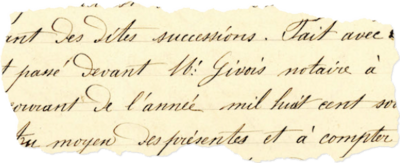 ant des dites successions. Fait avec
t passé devant Mr. Givois notaire à
courant de l'année mil huit cent soi
Au moyen des présentes et à compter